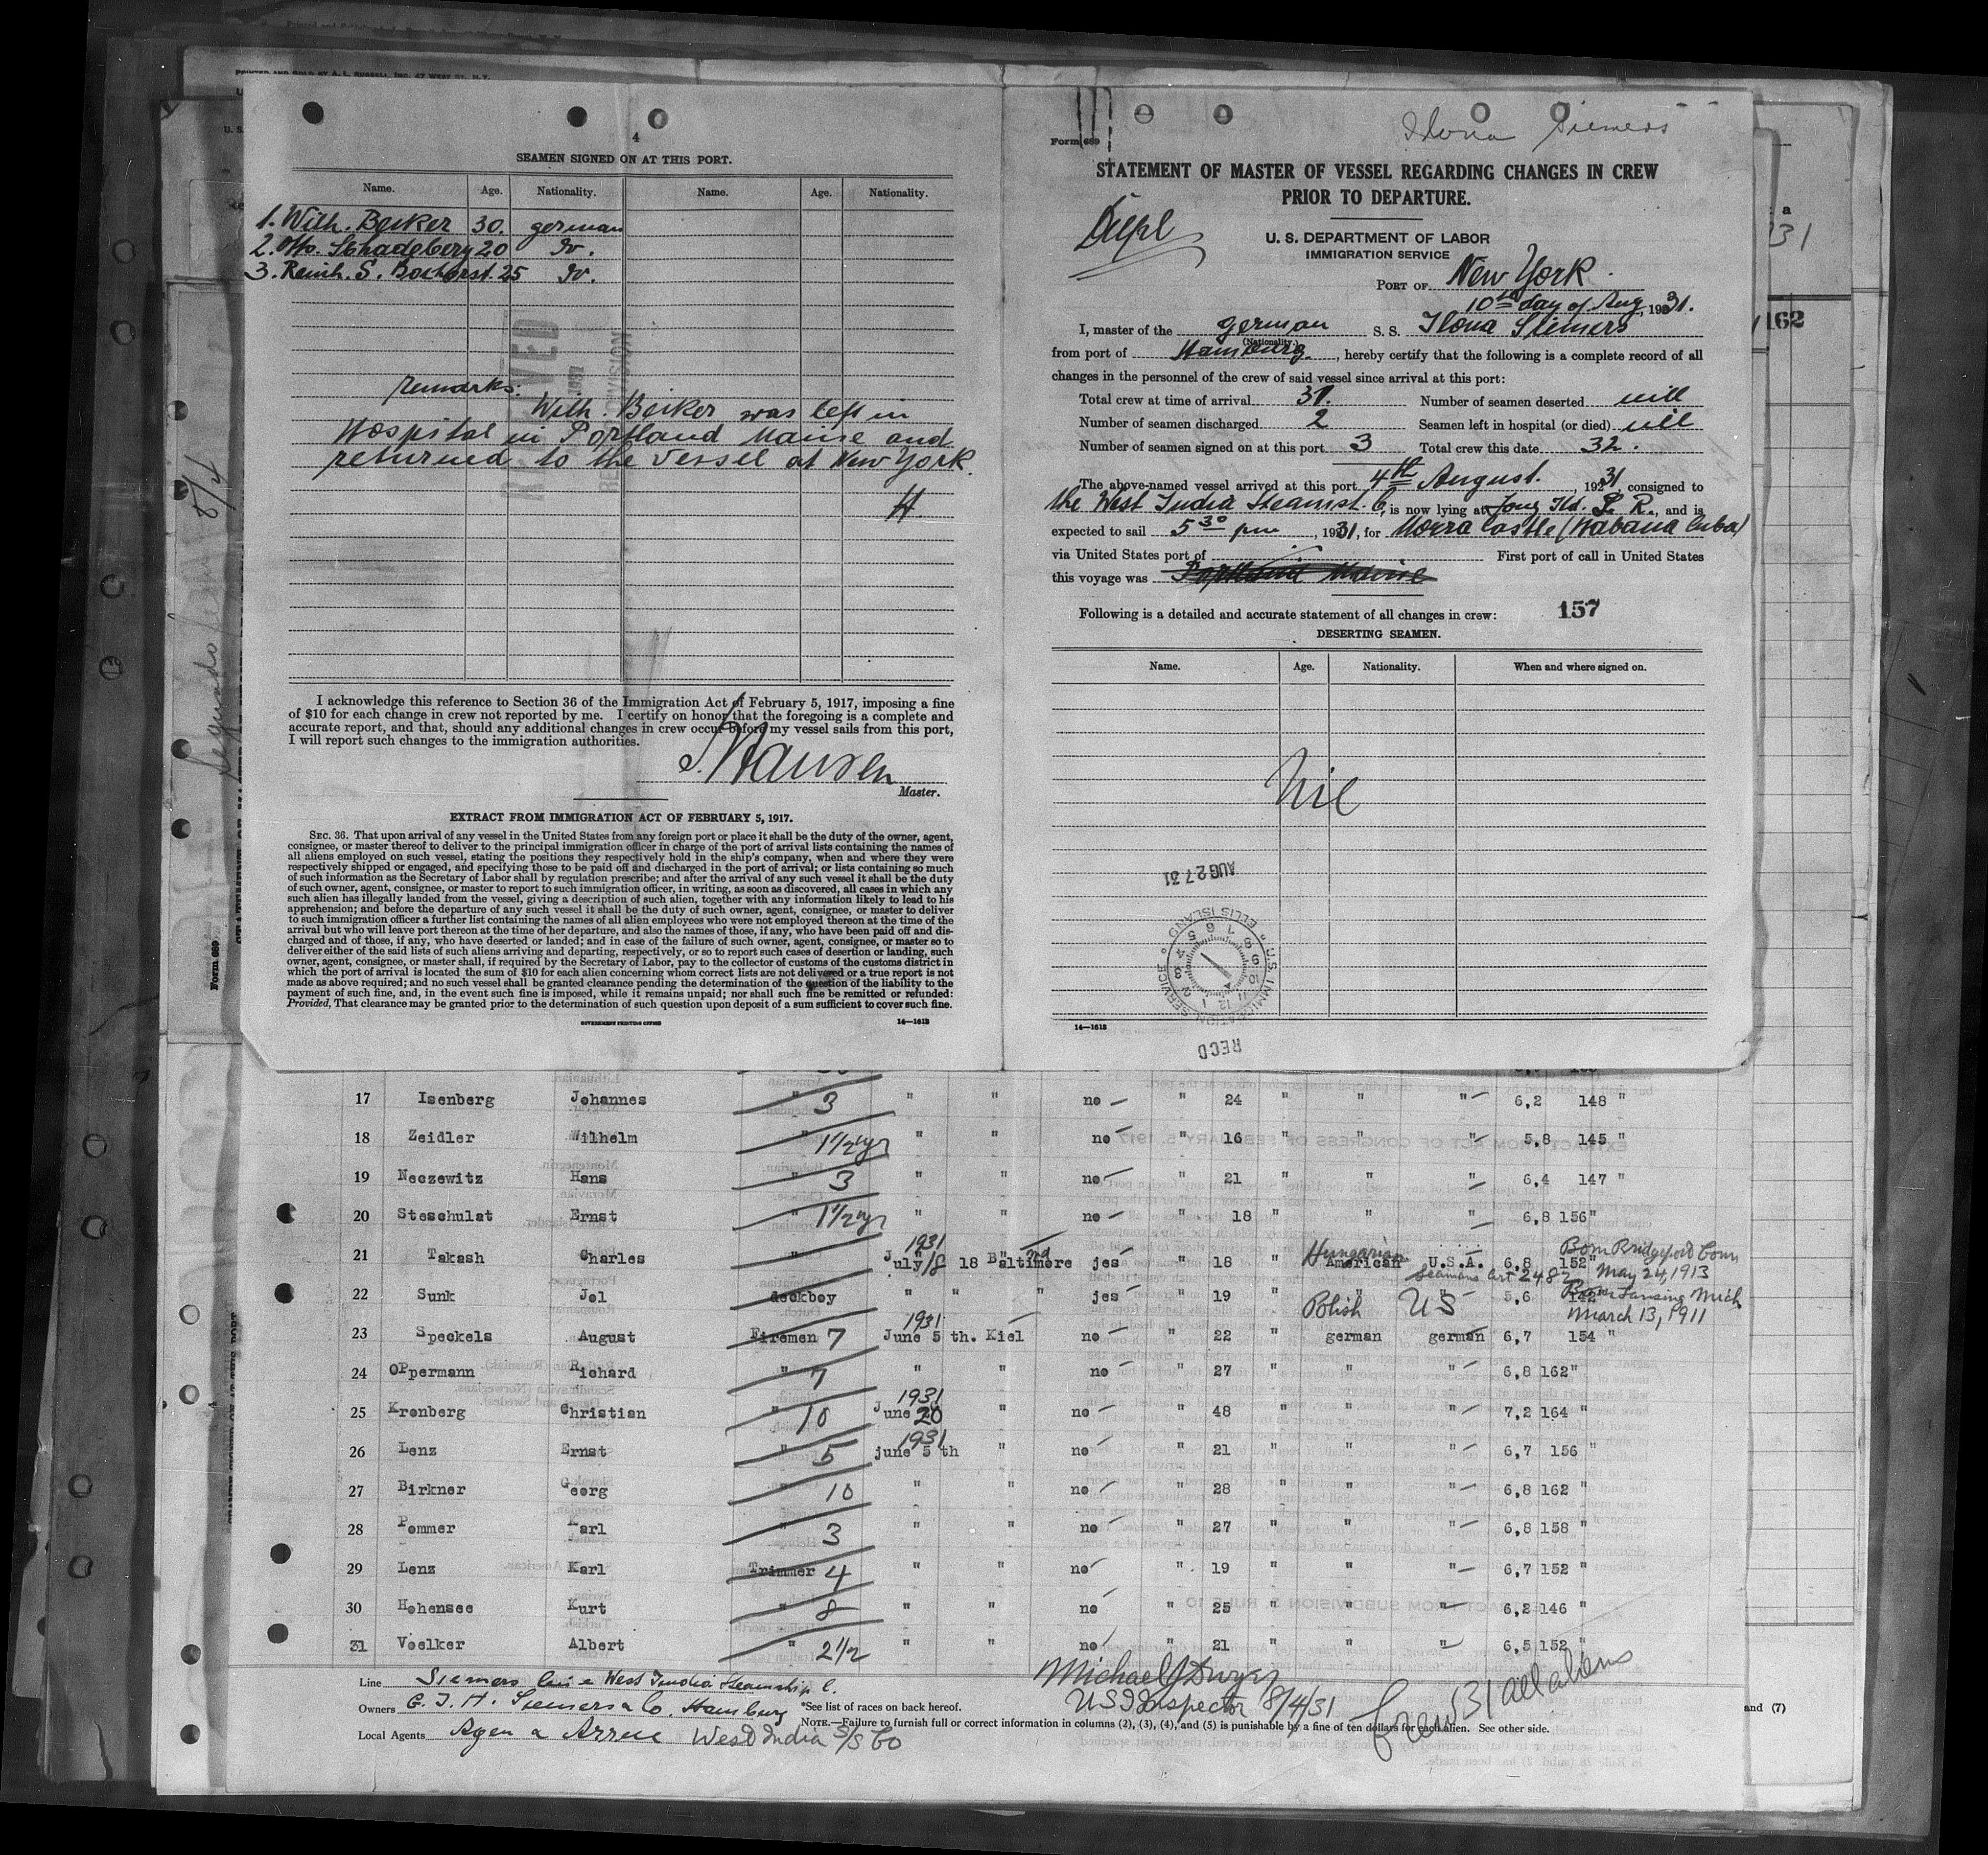 4
SEAMEN SIGNED ON AT THIS PORT.
Name. Age. Nationality. Name. Age. Nationality.
1. Wilh. Becker 30. german
2. Otto. Schadeberg 20 do.
3. Reinh. S. Bochorst. 25 do.
remarks:
Wilh. Becker was left in
Hospital in Portland Maine and
returned to the vessel at New York.
H.
I acknowledge this reference to Section 36 of the Immigration Act of February 5, 1917, imposing a fine
of $10 for each change in crew not reported by me. I certify on honor that the foregoing is a complete and
accurate report, and that, should any additional changes in crew occur before my vessel sails from this port,
I will report such changes to the immigration authorities.
Hansen
Master.
EXTRACT FROM IMMIGRATION ACT OF FEBRUARY 5, 1917.
SEC. 36. That upon arrival of any vessel in the United States from any foreign port or place it shall be the duty of the owner, agent,
consignee, or master thereof to deliver to the principal immigration officer in charge of the port of arrival lists containing the names of
all aliens employed on such vessel, stating the positions they respectively hold in the ship's company, when and where they were
respectively shipped or engaged, and specifying those to be paid off and discharged in the port of arrival; or lists containing so much
of such information as the Secretary of Labor shall by regulation prescribe; and after the arrival of any such vessel it shall be the duty
of such owner, agent, consignee, or master to report to such immigration officer, in writing, as soon as discovered, all cases in which any
such alien has illegally landed from the vessel, giving a description of such alien, together with any information likely to lead to his
apprehension; and before the departure of any such vessel it shall be the duty of such owner, agent, consignee, or master to deliver
to such immigration officer a further list containing the names of all alien employees who were not employed thereon at the time of the
arrival but who will leave port thereon at the time of her departure, and also the names of those, if any, who have been paid off and dis-
charged and of those, if any, who have deserted or landed; and in case of the failure of such owner, agent, consignee, or master so to
deliver either of the said lists of such aliens arriving and departing, respectively, or so to report such cases of desertion or landing, such
owner, agent, consignee, or master shall, if required by the Secretary of Labor, pay to the collector of customs of the customs district in
which the port of arrival is located the sum of $10 for each alien concerning whom correct lists are not delivered or a true report is not
made as above required; and no such vessel shall be granted clearance pending the determination of the question of the liability to the
payment of such fine, and, in the event such fine is imposed, while it remains unpaid; nor shall such fine be remitted or refunded:
Provided, That clearance may be granted prior to the determination of such question upon deposit of a sum sufficient to cover such fine.
GOVERNMENT PRINTING OFFICE 14—1613
Ilona Siemers
Form 689
STATEMENT OF MASTER OF VESSEL REGARDING CHANGES IN CREW
PRIOR TO DEPARTURE.
U. S. DEPARTMENT OF LABOR
IMMIGRATION SERVICE
PORT OF New York
10th day of Aug, 1931.
I, master of the german S. S. Ilona Siemers
(Nationality.)
from port of Hamburg, hereby certify that the following is a complete record of all
changes in the personnel of the crew of said vessel since arrival at this port:
Total crew at time of arrival 31. Number of seamen deserted nill
Number of seamen discharged 2 Seamen left in hospital (or died) nil
Number of seamen signed on at this port 3 Total crew this date 32.
The above-named vessel arrived at this port 4th August., 1931, consigned to
the West India Steamsh. C, is now lying at Long Ild. R., and is
expected to sail 5 30 pm, 1931, for Morra Castle (Habana Cuba)
via United States port of First port of call in United States
this voyage was Portland Maine
Following is a detailed and accurate statement of all changes in crew: 157
DESERTING SEAMEN.
Name. Age. Nationality. When and where signed on.
Nil
AUG 27 31
U.S. IMMIGRATION SERVICE ELLIS ISLAND
RECD
14—1613
162
Form 689
17 Isenberg Johannes " 3 " " no " 24 " " " 6,2 148 "
18 Zeidler Wilhelm 1½ yr " " no " 16 " " " 5,8 145 "
19 Neczewitz Hans " 3 " " no " 21 " " " 6,4 147 "
20 Steschulat Ernst " 1½ yr " " no " 18 " " " 6,8 156 "
21 Takash Charles " July/8 1931 18 Baltimore jes " 18 " Hungarian American U.S.A. 6,8 152 " Born Bridgeport Conn May 24, 1913
Seamans Cert 2482
22 Sunk Jol deckboy " " " jes " 19 " Polish US 5,6 Born Lansing Mich March 13, 1911
23 Speckels August Firemen 7 June 5 th. 1931 Kiel no " 22 " german german 6,7 154 "
24 OPpermann Richard " 7 " " no " 27 " " " 6,8 162 "
25 Kronberg Christian " 10 June 20 1931 " no " 48 " " " 7,2 164 "
26 Lenz Ernst " 5 june 5 th 1931 " no " 21 " " " 6,7 156 "
27 Birkner Georg " 10 " " no " 28 " " " 6,8 162 "
28 Pommer Karl " 3 " " no " 27 " " " 6,8 158 "
29 Lenz Karl Trimmer 4 " " no " 19 " " " 6,7 152 "
30 Hohensee Kurt " 8 " " no " 25 " " " 6,2 146 "
31 Voelker Albert " 2½ " " no " 21 " " " 6,5 152 "
Line Siemers line West Indía Steamship C.
Owners G. J. H. Siemers & Co. Hamburg
Local Agents West India S/S Co
*See list of races on back hereof.
Michael J Dwyer
US Inspector 8/4/31
Crew 31 all aliens
NOTE.—Failure to furnish full or correct information in columns (2), (3), (4), and (5) is punishable by a fine of ten dollars for each alien. See other side.
and (7)